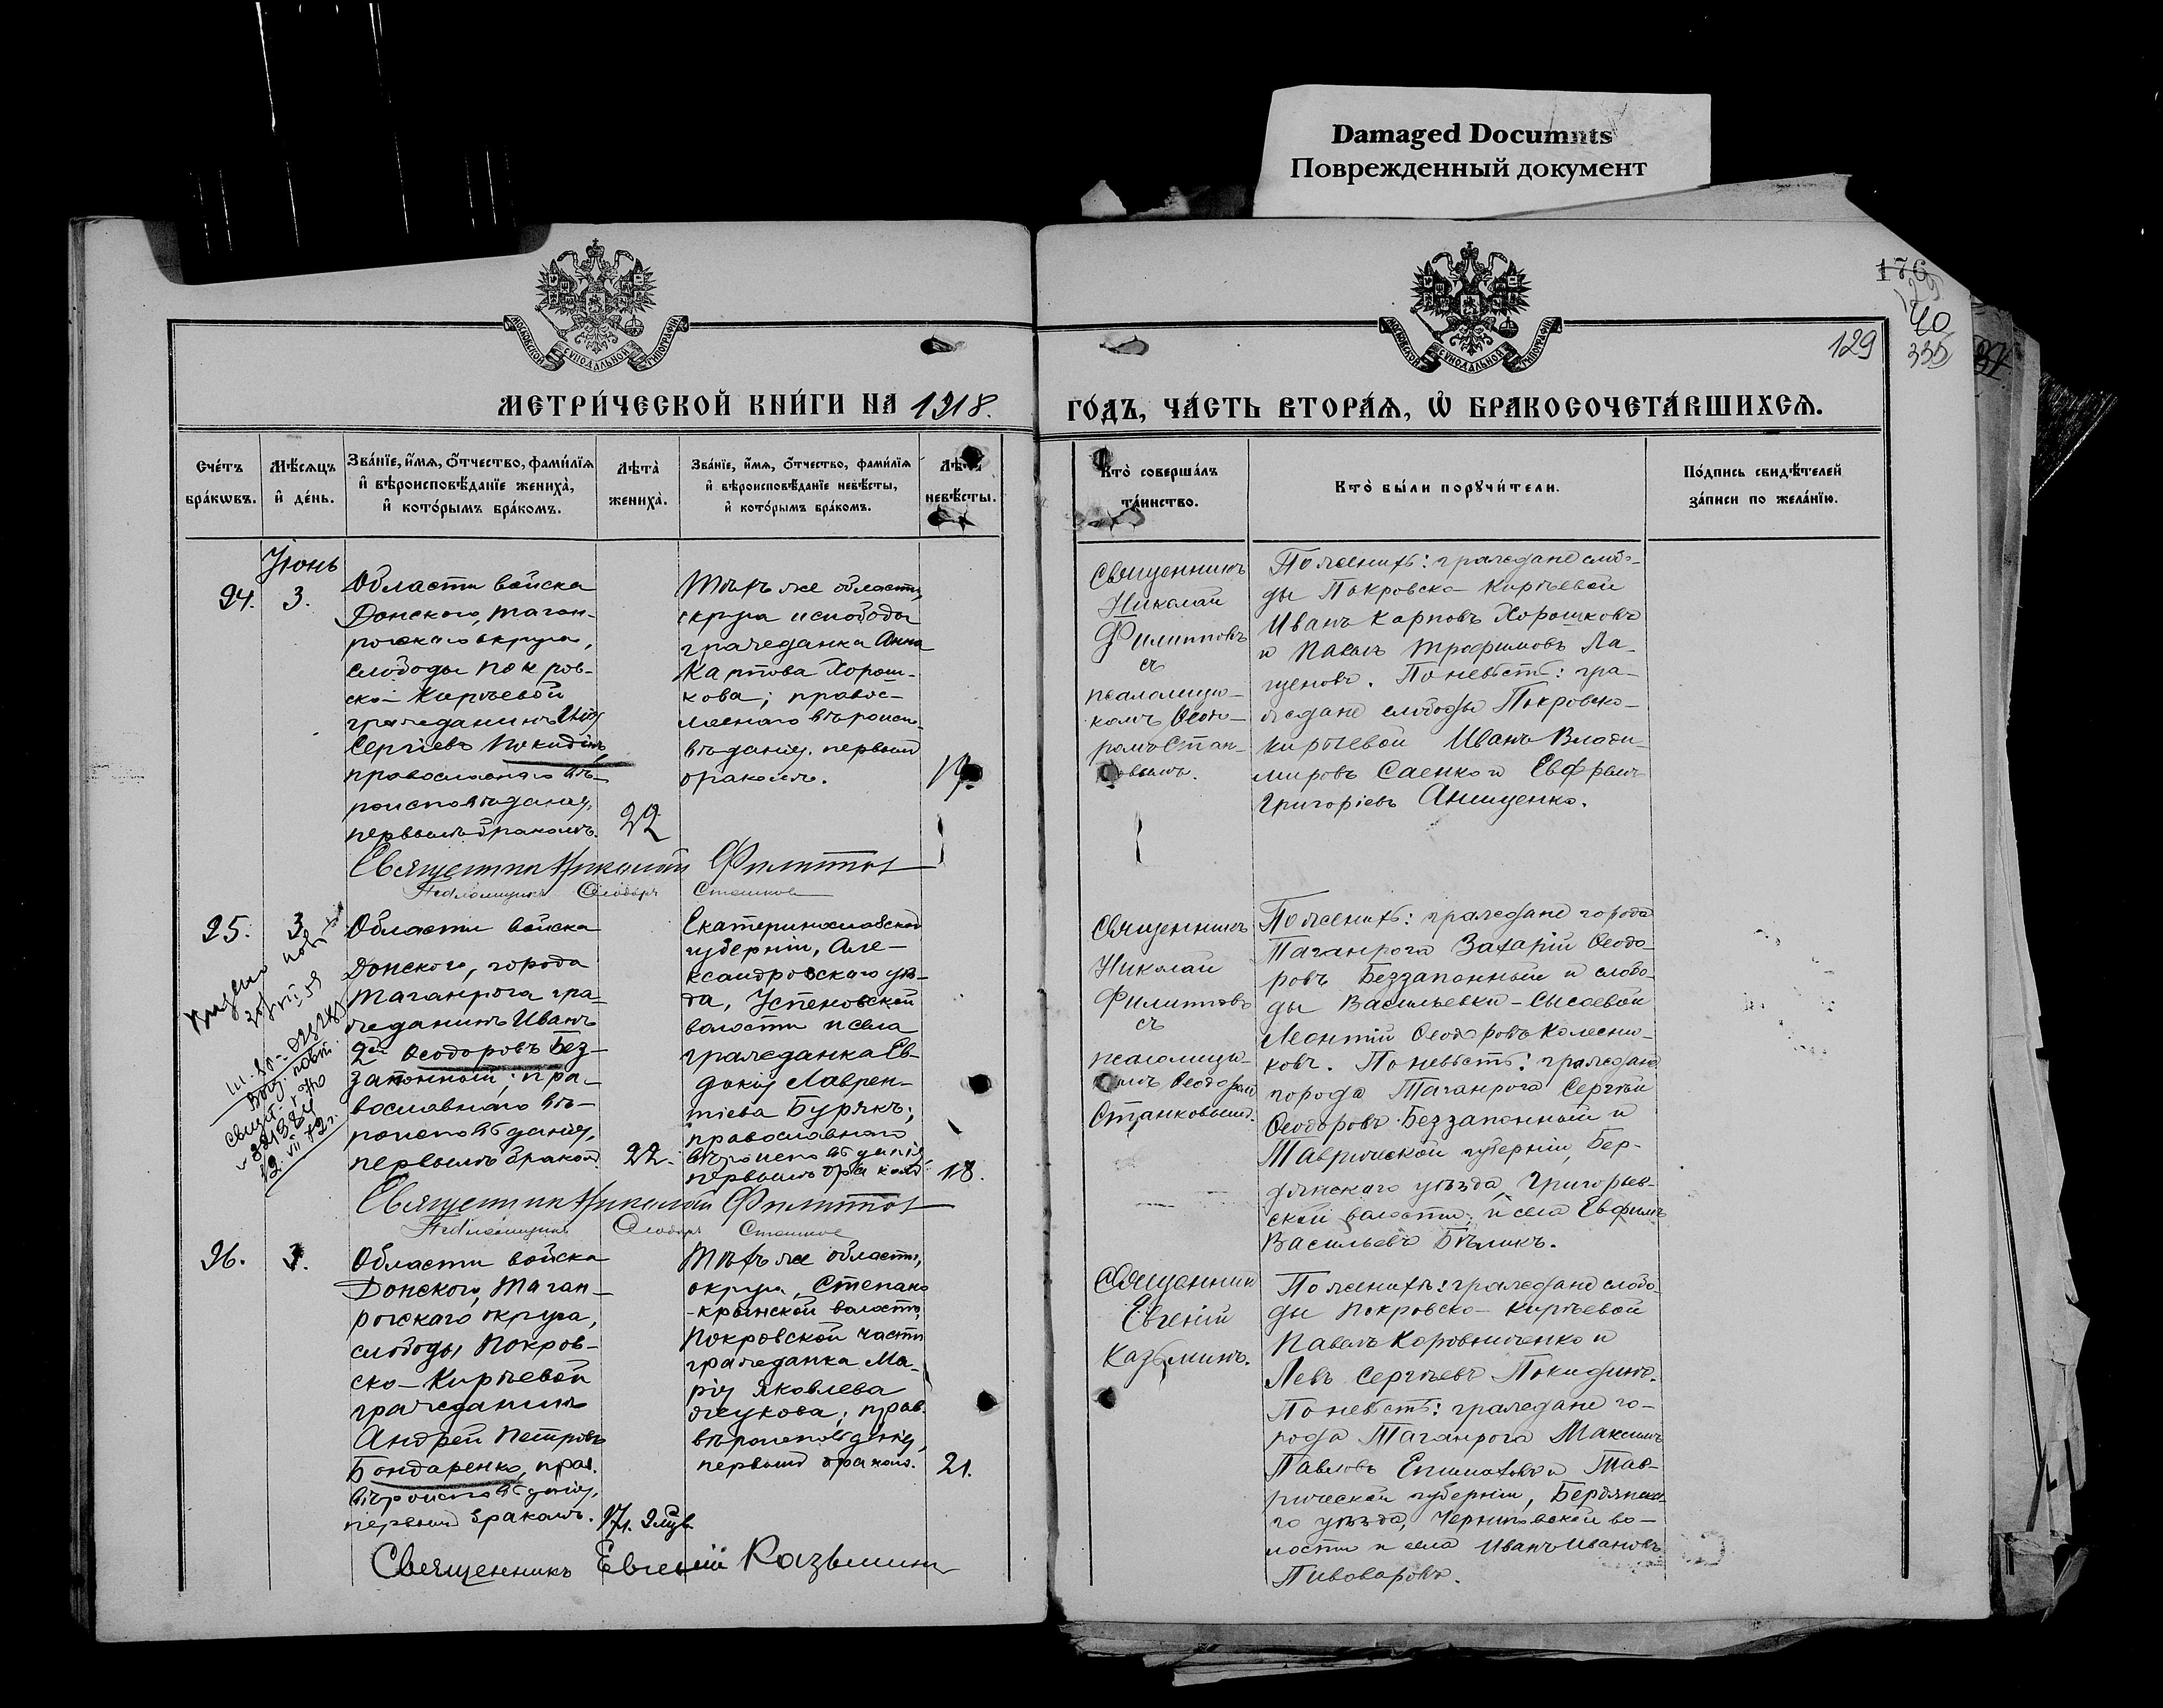 Damaged Documnts
Поврежденный документ
МОСКОВСКОЙ СѴНОДАЛЬНОЙ ТИПОГРАФІИ
МОСКОВСКОЙ СѴНОДАЛЬНОЙ ТИПОГРАФІИ
176
40
335
129
МЕТРИ́ЧЕСКОЙ КНИ́ГИ НА 1918.
ГО́ДЪ, ЧА́СТЬ ВТОРА́Ѧ, Ѡ҆ БРАКОСОЧЕТА́ВШИХСѦ.
Сче́тъ
бра́кѡвъ.
Мѣ́сѧцъ
и҆ де́нь.
Зва́нїе, и҆́мѧ, ѻ҆́тчество, фами́лїѧ
и҆ вѣроисповѣ́данїе жениха̀,
и҆ кото́рымъ бра́комъ.
Лѣта̀
жениха̀.
Зва́нїе, и҆́мѧ, ѻ҆́тчество, фами́лїѧ
и҆ вѣроисповѣ́данїе невѣ́сты,
и҆ кото́рымъ бра́комъ.
Лѣта̀
невѣ́сты.
Кто̀ соверша́лъ
та́инство.
Кто̀ бы́ли порꙋчи́тели.
По́дпись свидѣ́телей
за́писи по жела́нїю.
Іюнь
24.
3.
Области войска
Донского, Таган-
рогскаго округа,
слободы Покров-
ско-Кирѣевой
гражданинъ
Сергіевъ Покидинъ,
православнаго вѣ-
роисповѣданія,
первымъ бракомъ.
22
Тѣхъ же области,
округа и слободы
гражданка Анна
Карпова Хорош-
кова; правос-
лавнаго вѣроиспо-
вѣданія, первымъ
бракомъ.
Священникъ
Николай
Филипповъ
съ
псаломщи-
комъ Ѳеодо-
ромъ Стан-
ковымъ.
По женихѣ: граждане слобо-
ды Покровско-Кирѣевой
Иванъ Карповъ Хорошковъ
и Павелъ Трофимовъ Ла-
щеновъ. По невѣстѣ: гра-
ждане слободы Покровско-
Кирѣевой Иванъ Влади-
мировъ Саенко и Евфимъ
Григоріевъ Анищенко.
Священникъ Николай Филиппов
Псаломщикъ Ѳеодоръ Станков
25.
3
Области войска
Донского, города
Таганрога гра-
жданинъ Иванъ
2й Ѳеодоровъ Без-
запонный; пра-
вославнаго вѣ-
роисповѣданія,
первымъ бракомъ
22.
Екатеринославской
губерніи, Але-
ксандровскаго уѣз-
да, Успеновской
волости и села
гражданка Ев-
докія Лаврен-
тіева Бурякъ;
православнаго
вѣроисповѣданія,
первымъ бракомъ
18.
Священникъ
Николай
Филипповъ
съ
псаломщи-
комъ Ѳеодоромъ
Станковымъ.
По женихѣ: граждане города
Таганрога Захарій Ѳеодо-
ровъ Беззапонный и слобо-
ды Васильевки-Сысоевой
Леонтій Ѳеодоровъ Колесни-
ковъ. По невѣстѣ: граждане
города Таганрога Сергѣй
Ѳеодоровъ Беззапонный и
Таврической губерніи, Бер-
дянскаго уѣзда, Григорьев-
ской волости, и села Евфимъ
Васильевъ Бѣликъ.
Священникъ Николай Филиппов
Псаломщикъ Ѳеодоръ Станков
26.
3.
Области войска
Донского, Таган-
рогскаго округа,
слободы Покров-
ско-Кирѣевой
гражданинъ
Андрей Петровъ
Бондаренко, прав.
вѣроисповѣданія,
первымъ бракомъ.
Тѣхъ же области,
округа, Степано
-Крынской волости,
Покровской части
гражданка Ма-
рія Яковлева
Жукова; прав.
вѣроисповѣданія,
первымъ бракомъ.
21.
Священникъ
Евгеній
Казьминъ.
По женихѣ: граждане слобо-
ды Покровско-Кирѣевой
Павелъ Коровниченко и
Левъ Сергѣевъ Покидинъ.
По невѣстѣ: граждане го-
рода Таганрога Максимъ
Павловъ и Тав-
рической губерніи, Бердянска-
го уѣзда, Черниговской во-
лости и села Иванъ Ивановъ
Пивоваровъ.
Священникъ Евгеній Казьминъ